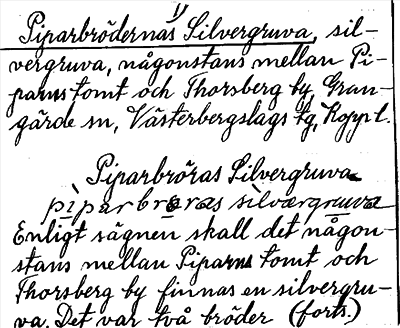 Piparbrödernas Silvergruva, sil-
vergruva, någonstans mellan Pi-
parns tomt och Thorsberg by, Gran-
gärde sn, Västerbergslags tg, Kopp l.
Piparbröras Silvergruva
pìparbrøras sìlværgruva
Enligt sägnen skall det någon-
stans mellan Piparns tomt och
Thorsberg by finnas en silvergru-
va. Det var två bröder (forts.)